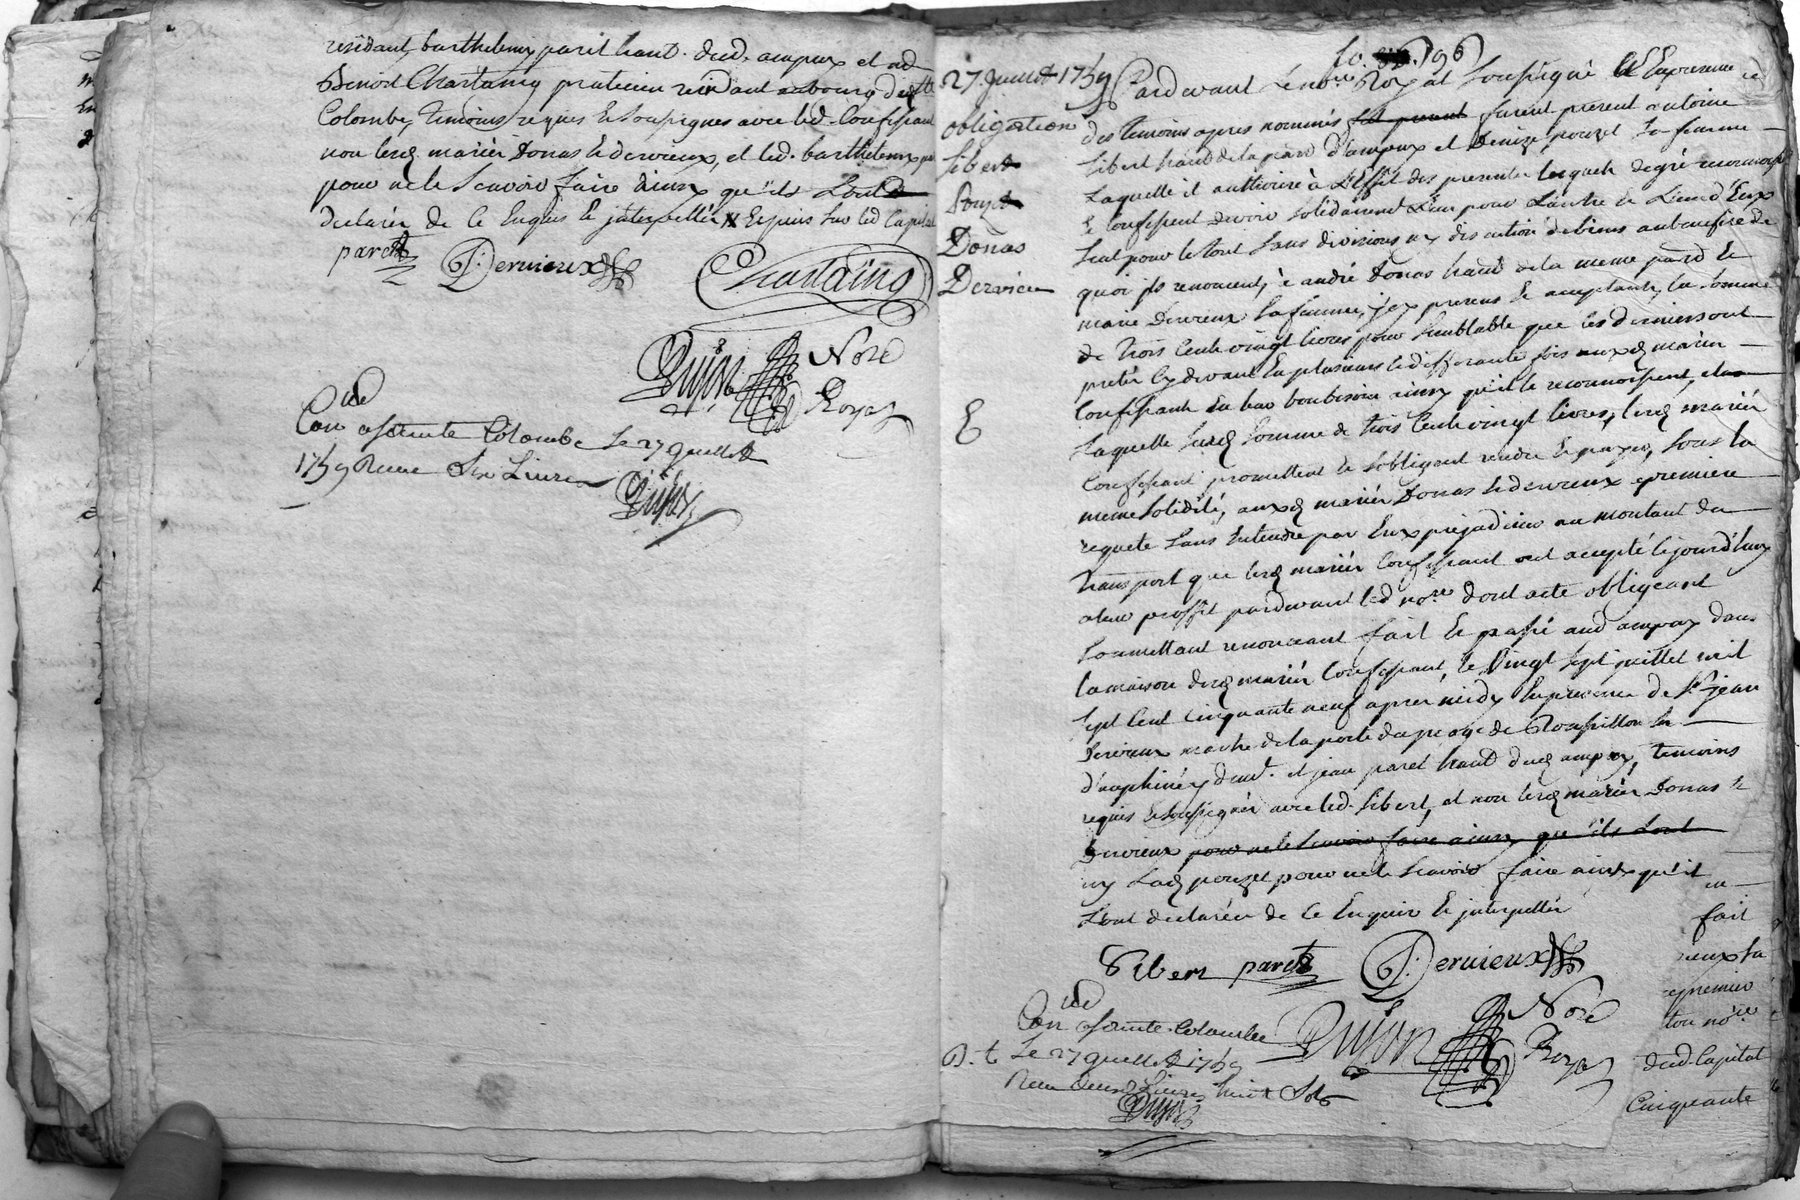 residant, barthelemy paret habt. dud. ampuy et
Benoit Chastaing praticien residant au bourg de Ste
Colombe, temoins requis et soussignes avec led. confessant
non lesd mariés Donas et dervieux, et led. barthelemy
pour ne le scavoir faire ainsy qu'ils sont
declarés de ce enquis et interpellés X
paret Dervieux Chastaing
Dujon Nore
Royal
Con a sainte Colombe le 27 juillet
1759 Recu six Livres
Dujon
fo. 196
27 juillet 1759
obligation
Sibert
Pouzet
Donas
Dervieu
Pardevant le nore. Royal soussigné et En presence
des temoins apres nommés furent present antoine
Sibert habt de la par. d'ampuy et Denize pouzet sa femme
laquelle il authorise à L'Effet des presentes lesquels de gré reconnoissent
et confessent devoir solidairemt L'un pour L'autre et L'un d'Eux
seul pour le tout sans division ny discution de biens au benefice de
quoi ils renoncent, à andré Donas habt de la meme parr. et
marie Dervieux sa femme, icy presens et acceptants, la somme
de trois cents vingt livres pour semblable que les derniers ont
pretés cy devant en plusieurs et differantes fois auxd mariés
confessants du ainsy qu'il le reconnoissent,
laquelle susd somme de trois cents vingt livres, lesd mariés
confessant promettent et s'obligent rendre et payer, sous la
meme solidité, auxd mariés Donas et dervieux a premiere
requete sans entendre par Eux prejudicier au montant du
transport que lesd mariés confessant ont accepté cejourd'huy
a leur proffit pardevant led nore dont acte obligeant
soumettant renonceant fait et passé aud ampuy dans
la maison desd mariés confessant, le vingt sept juillet mil
sept cent cinquante neuf apres midy En presence de Sr jean
Dervieux de la poste du peage de Roussillon en
d'auphiné y demt. et jean paret habt dud ampuy, temoins
requis et soussignés avec led. Sibert, et non lesd mariés Donas et
Dervieux pour ne le scavoir faire ainsy que ils sont
ny lad pouzet pour ne le scavoir faire ainsy qu'il
sont declarés de ce Enquis et interpellés
Sibert paret Dervieux
Con a Sainte Colombe
le 27 juillet 1759
Recu deux Livres huit Sols
Dujon
Dujon Nore
Royal
fait
premier
dud. Capital
Cinquante